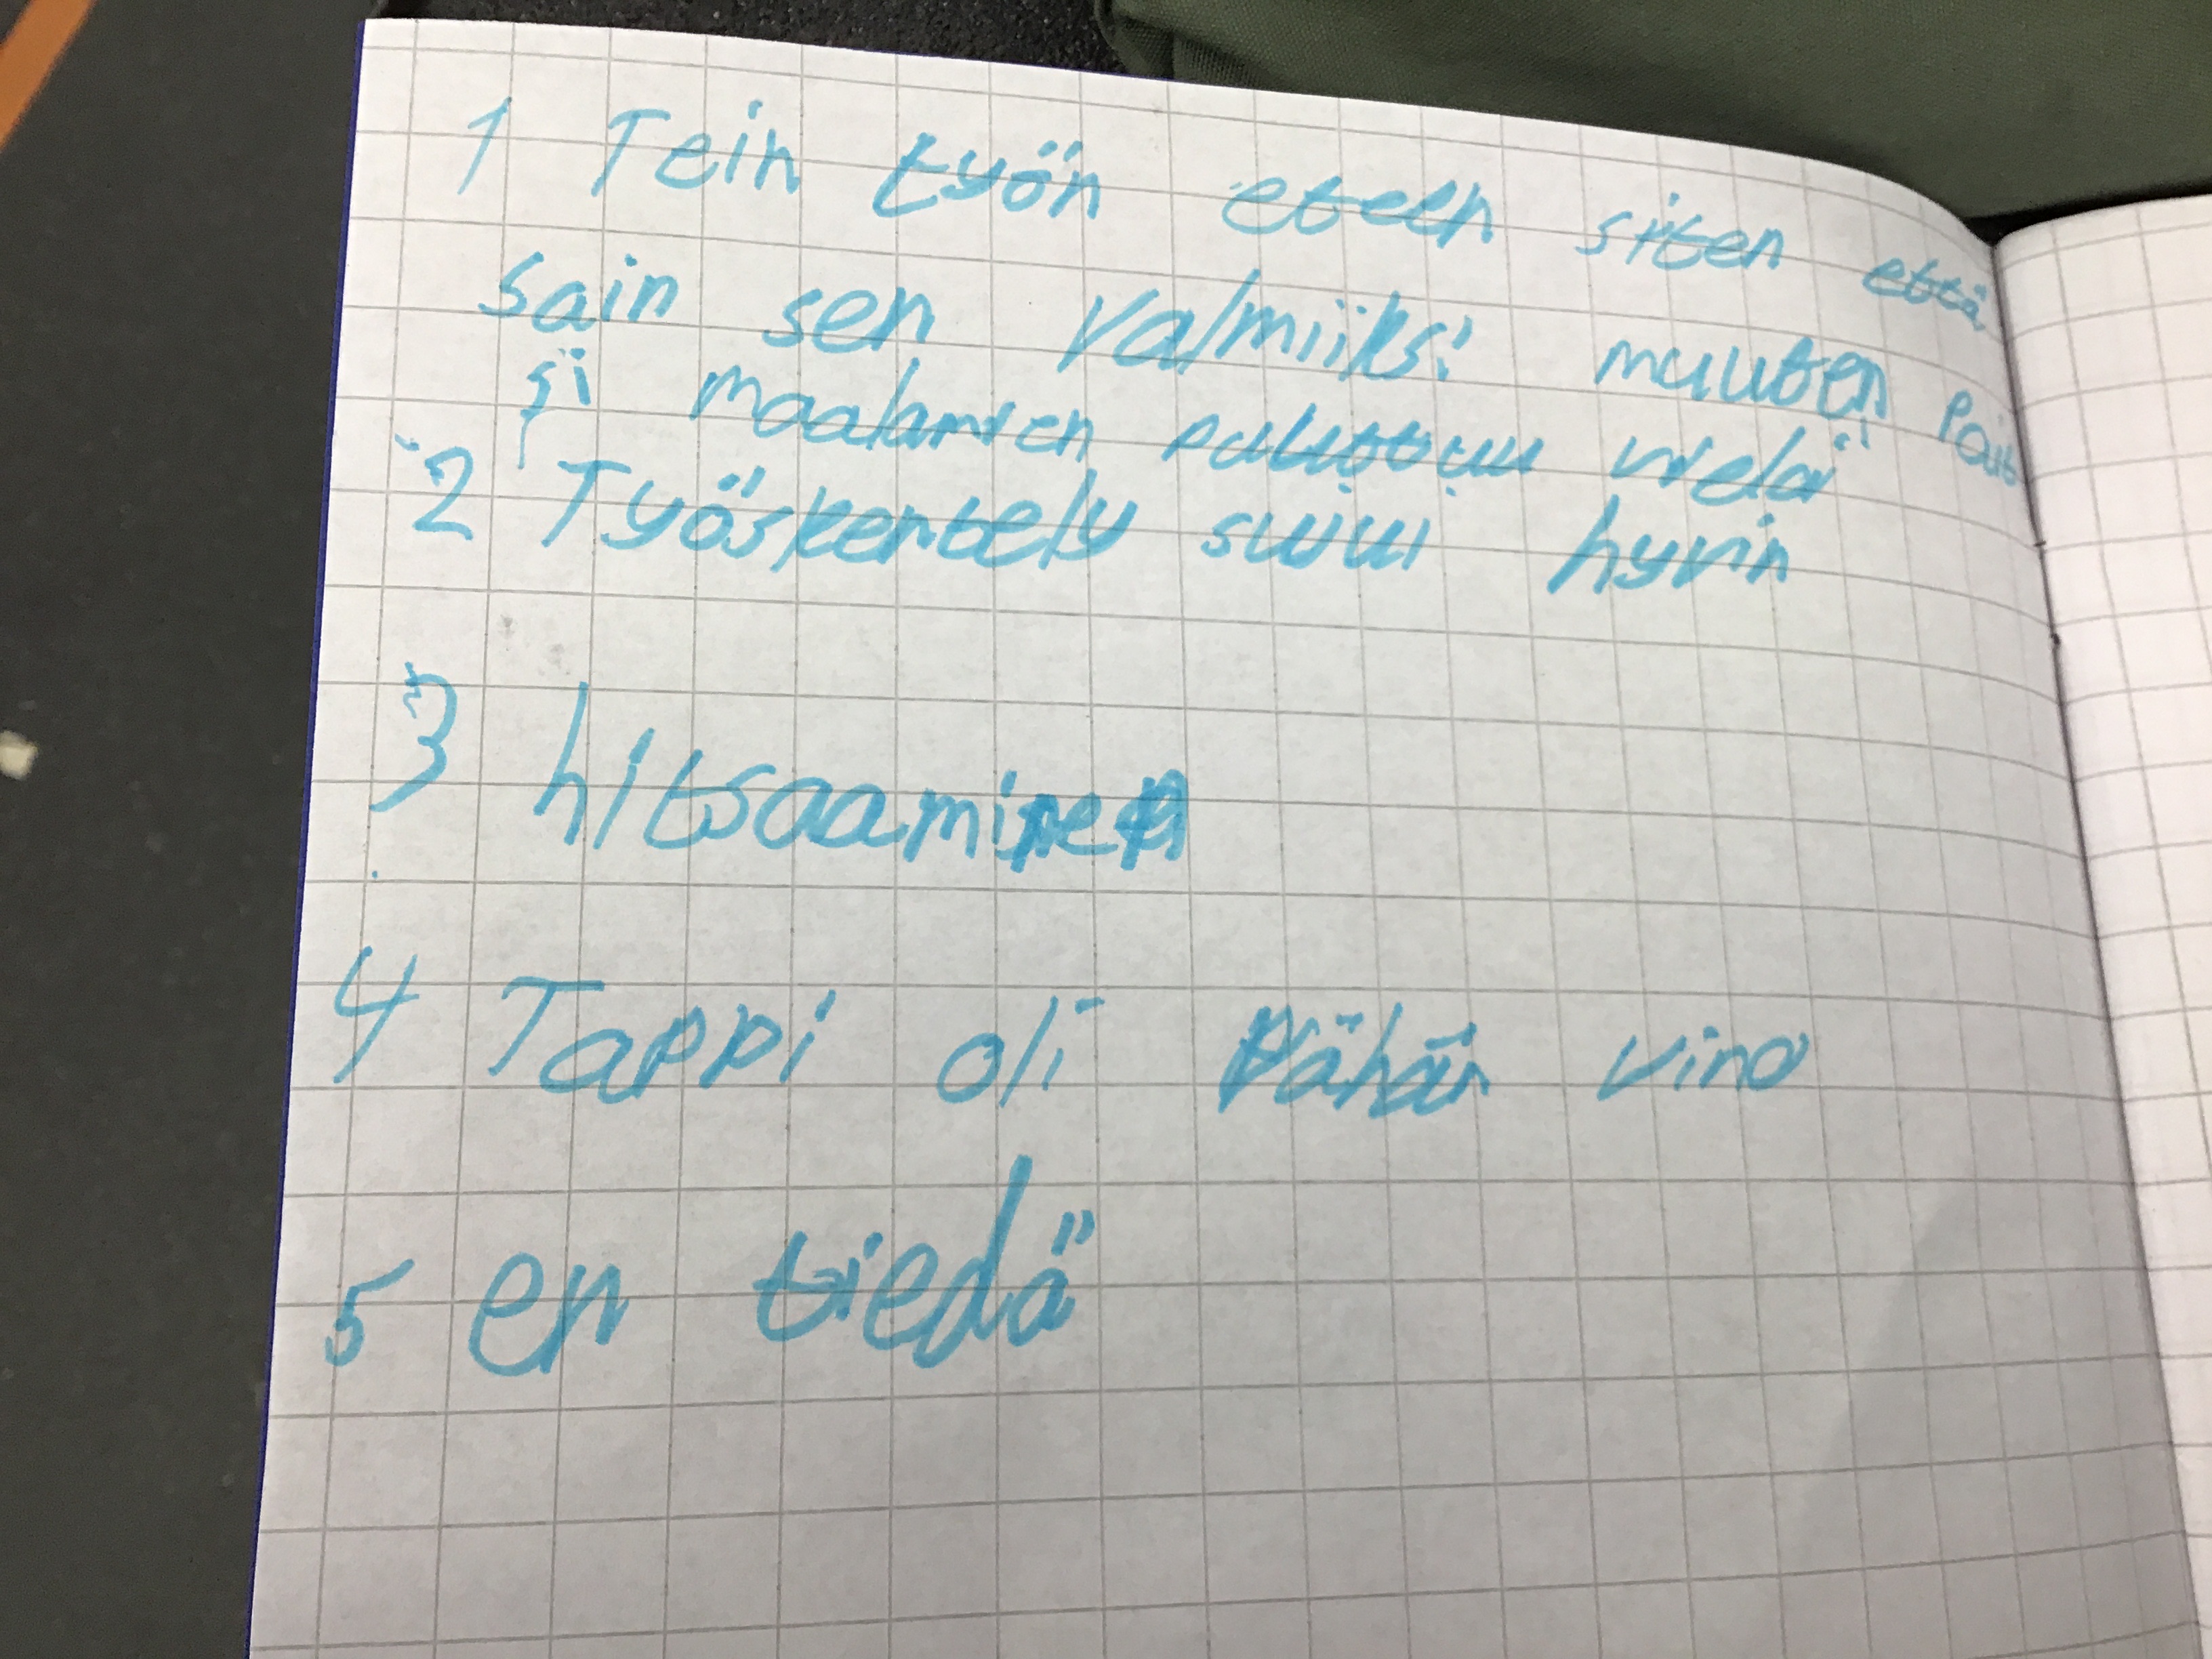 1 Tein työn eteen siten että
sain sen valmiiksi muuten Pait
si maalamien puluttuu vielä
2 Työskentely sujui hyvin
3 hitsaaminen
4 Tappi oli vähän vino
5 en tiedä